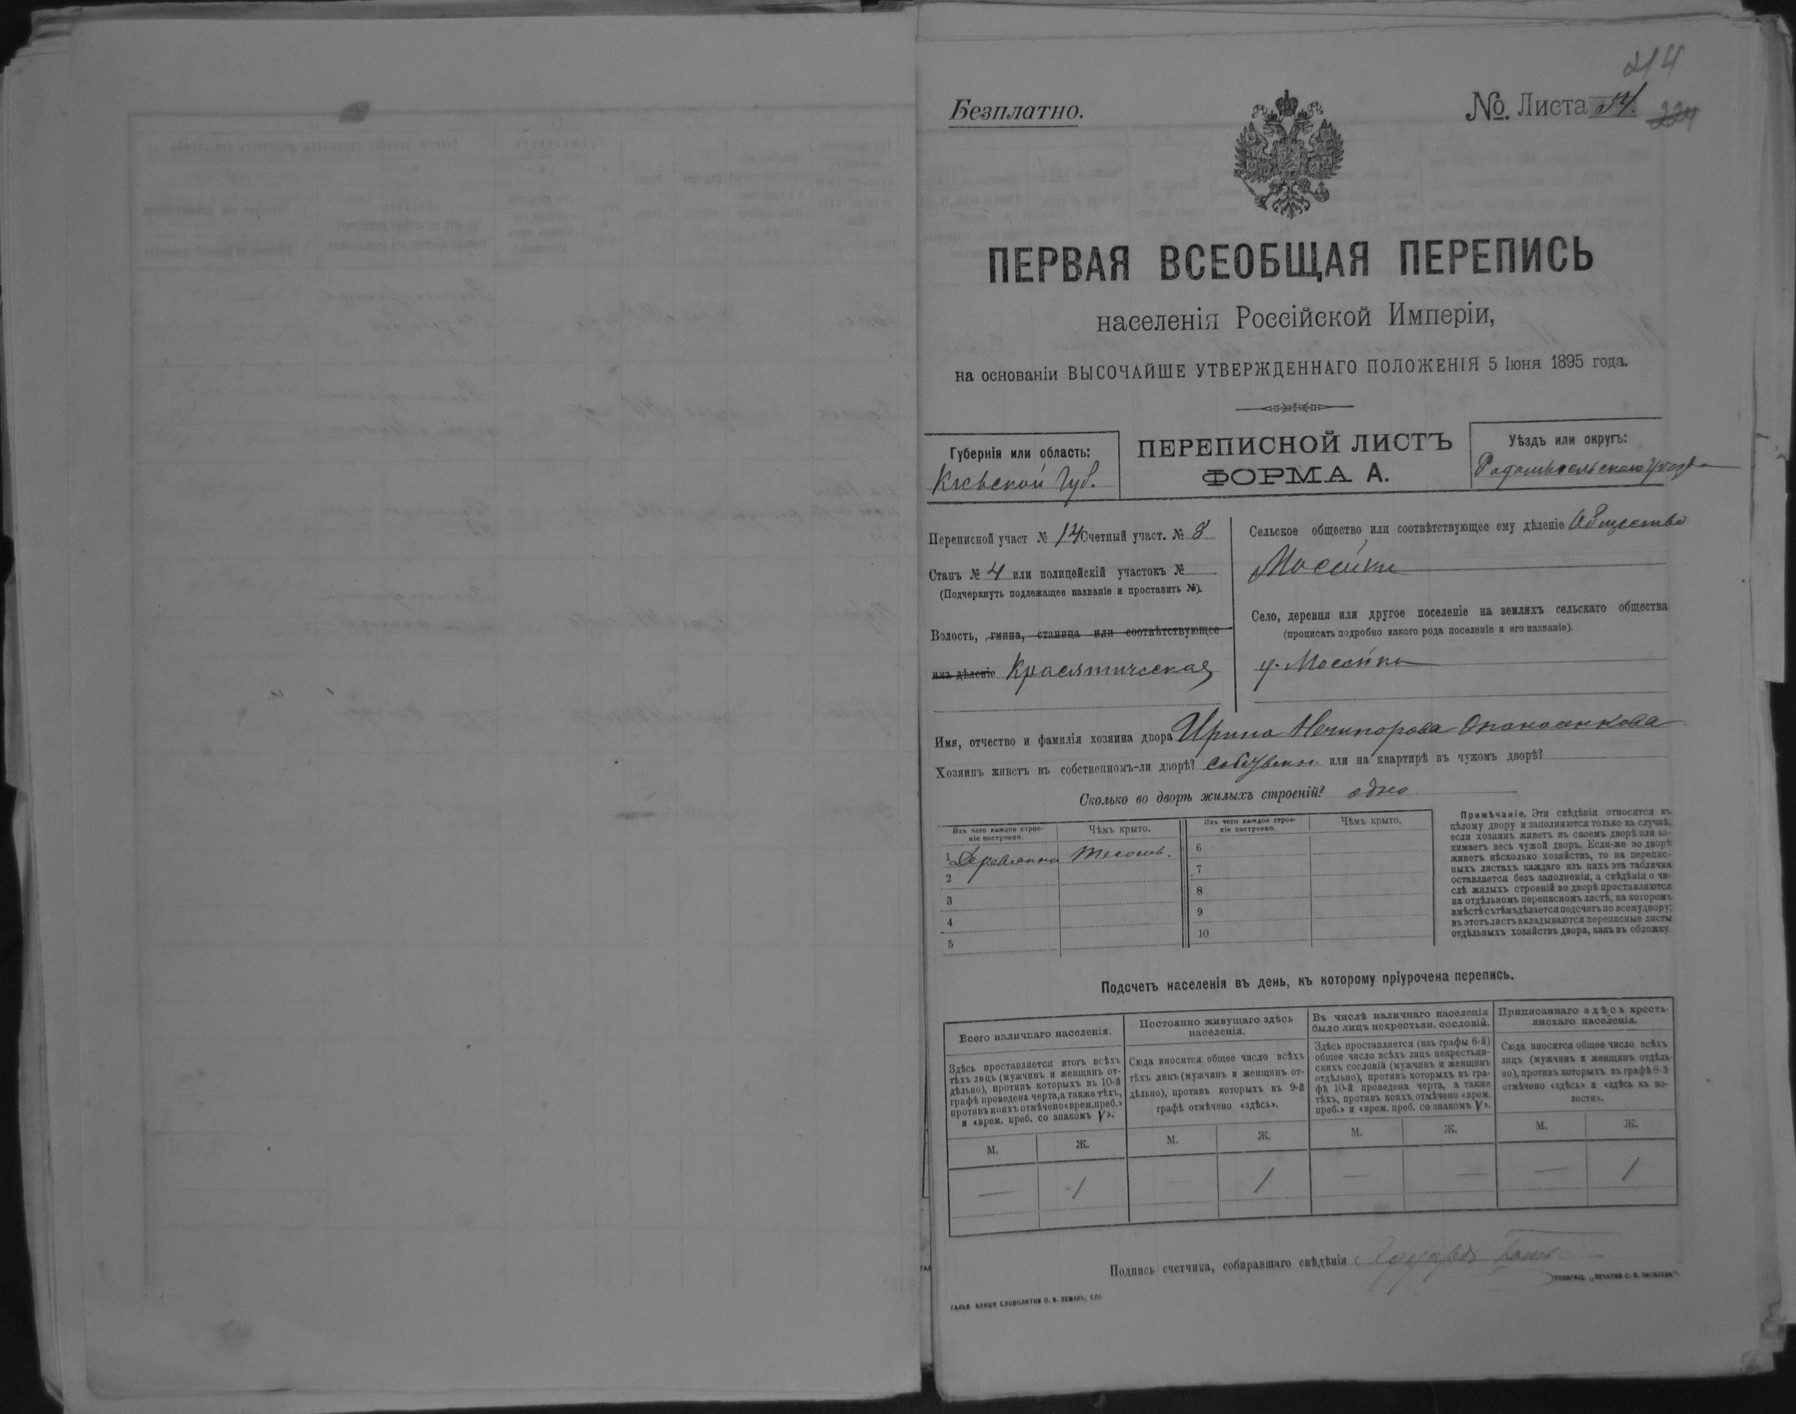 214
Безплатно.
№. Листа 54. 224
ПЕРВАЯ ВСЕОБЩАЯ ПЕРЕПИСЬ
населенія Россійской Имперіи,
на основаніи ВЫСОЧАЙШЕ УТВЕРЖДЕННАГО ПОЛОЖЕНІЯ 5 Іюня 1895 года.
Губернія или область:
Кіевской Губ.
ПЕРЕПИСНОЙ ЛИСТЪ
ФОРМА А.
Уѣздъ или округъ:
Радомысльскаго уѣзда
Переписной участ № 14 Счетный участ. № 8
Станъ № 4 или полицейскій участокъ №
(Подчеркнуть подлежащее названіе и проставить №).
Волость, гмина, станица или соотвѣтствующее
имъ дѣленіе Красятичская
Сельское общество или соотвѣтствующее ему дѣленіе Общество
Моссійки
Село, деревня или другое поселеніе на земляхъ сельскаго общества
(прописать подробно какого рода поселеніе и его названіе).
Моссійки
Имя, отчество и фамилія хозяина двора Ирина Нечипорова Опанасенкова
Хозяинъ живетъ въ собственномъ-ли дворѣ? или на квартирѣ въ чужомъ дворѣ?
Сколько во дворѣ жилыхъ строеній? одно
Изъ чего каждое строе-
ніе построено.
Чѣмъ крыто.
1 Деревянно
2
3
4
5
Изъ чего каждое строе-
ніе построено.
Чѣмъ крыто.
6
7
8
9
10
Примѣчаніе. Эти свѣдѣнія относятся къ
цѣлому двору и заполняются только въ случаѣ,
если хозяинъ живетъ въ своемъ дворѣ или за-
нимаетъ весь чужой дворъ. Если-же во дворѣ
живетъ нѣсколько хозяйствъ, то на перепис-
ныхъ листахъ каждаго изъ нихъ эта табличка
оставляется безъ заполненія, а свѣдѣнія о чи-
слѣ жилыхъ строеній во дворѣ проставляются
на отдѣльномъ переписномъ листѣ, на которомъ
вмѣстѣ съ тѣмъ дѣлается подсчетъ по всему двору;
въ этотъ листъ вкладываются переписные листы
отдѣльныхъ хозяйствъ двора, какъ въ обложку.
Подсчетъ населенія въ день, къ которому пріурочена перепись.
Всего наличнаго населенія.
Здѣсь проставляется итогъ всѣхъ
тѣхъ лицъ (мужчинъ и женщинъ от-
дѣльно), противъ которыхъ въ 10-й
графѣ проведена черта, а также тѣхъ,
противъ коихъ отмѣчено «врем. преб.»
и «врем. преб. со знакомъ V».
М. Ж.
— 1
Постоянно живущаго здѣсь
населенія.
Сюда вносится общее число всѣхъ
тѣхъ лицъ (мужчинъ и женщинъ от-
дѣльно), противъ которыхъ въ 9-й
графѣ отмѣчено «здѣсь».
М. Ж.
— 1
Въ числѣ наличнаго населенія
было лицъ некрестьян. сословій.
Здѣсь проставляется (изъ графы 6-й)
общее число всѣхъ лицъ некрестьян-
скихъ сословій (мужчинъ и женщинъ
отдѣльно), противъ которыхъ въ гра-
фѣ 10-й проведена черта, а также
тѣхъ, противъ коихъ отмѣчено «врем.
преб.» и «врем. преб. со знакомъ V».
М. Ж.
— —
Приписаннаго здѣсь кресть-
янскаго населенія.
Сюда вносится общее число всѣхъ
лицъ (мужчинъ и женщинъ отдѣль-
но), противъ которыхъ въ графѣ 8-й
отмѣчено «здѣсь» и «здѣсь въ во-
лости».
М. Ж.
— 1
Подпись счетчика, собиравшаго свѣдѣнія